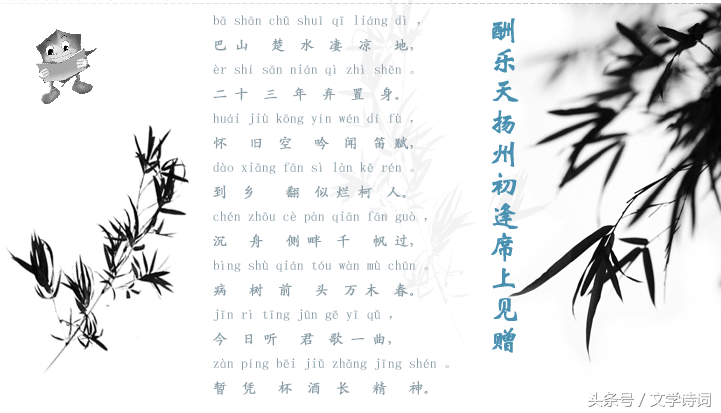 酬乐天扬州初逢席上见赠
bā shān chǔ shuǐ qī liáng dì ，
巴 山 楚 水 凄 凉 地，
èr shí sān nián qì zhì shēn 。
二 十 三 年 弃 置 身。
huái jiù kōng yín wén dí fù ，
怀 旧 空 吟 闻 笛 赋，
dào xiāng fān sì làn kē rén 。
到 乡 翻 似 烂 柯 人。
chén zhōu cè pàn qiān fān guò ，
沉 舟 侧 畔 千 帆 过，
bìng shù qián tóu wàn mù chūn 。
病 树 前 头 万 木 春。
jīn rì tīng jūn gē yī qǔ ，
今 日 听 君 歌 一 曲，
zàn píng bēi jiǔ zhǎng jīng shén 。
暂 凭 杯 酒 长 精 神。
头条号 / 文学诗词